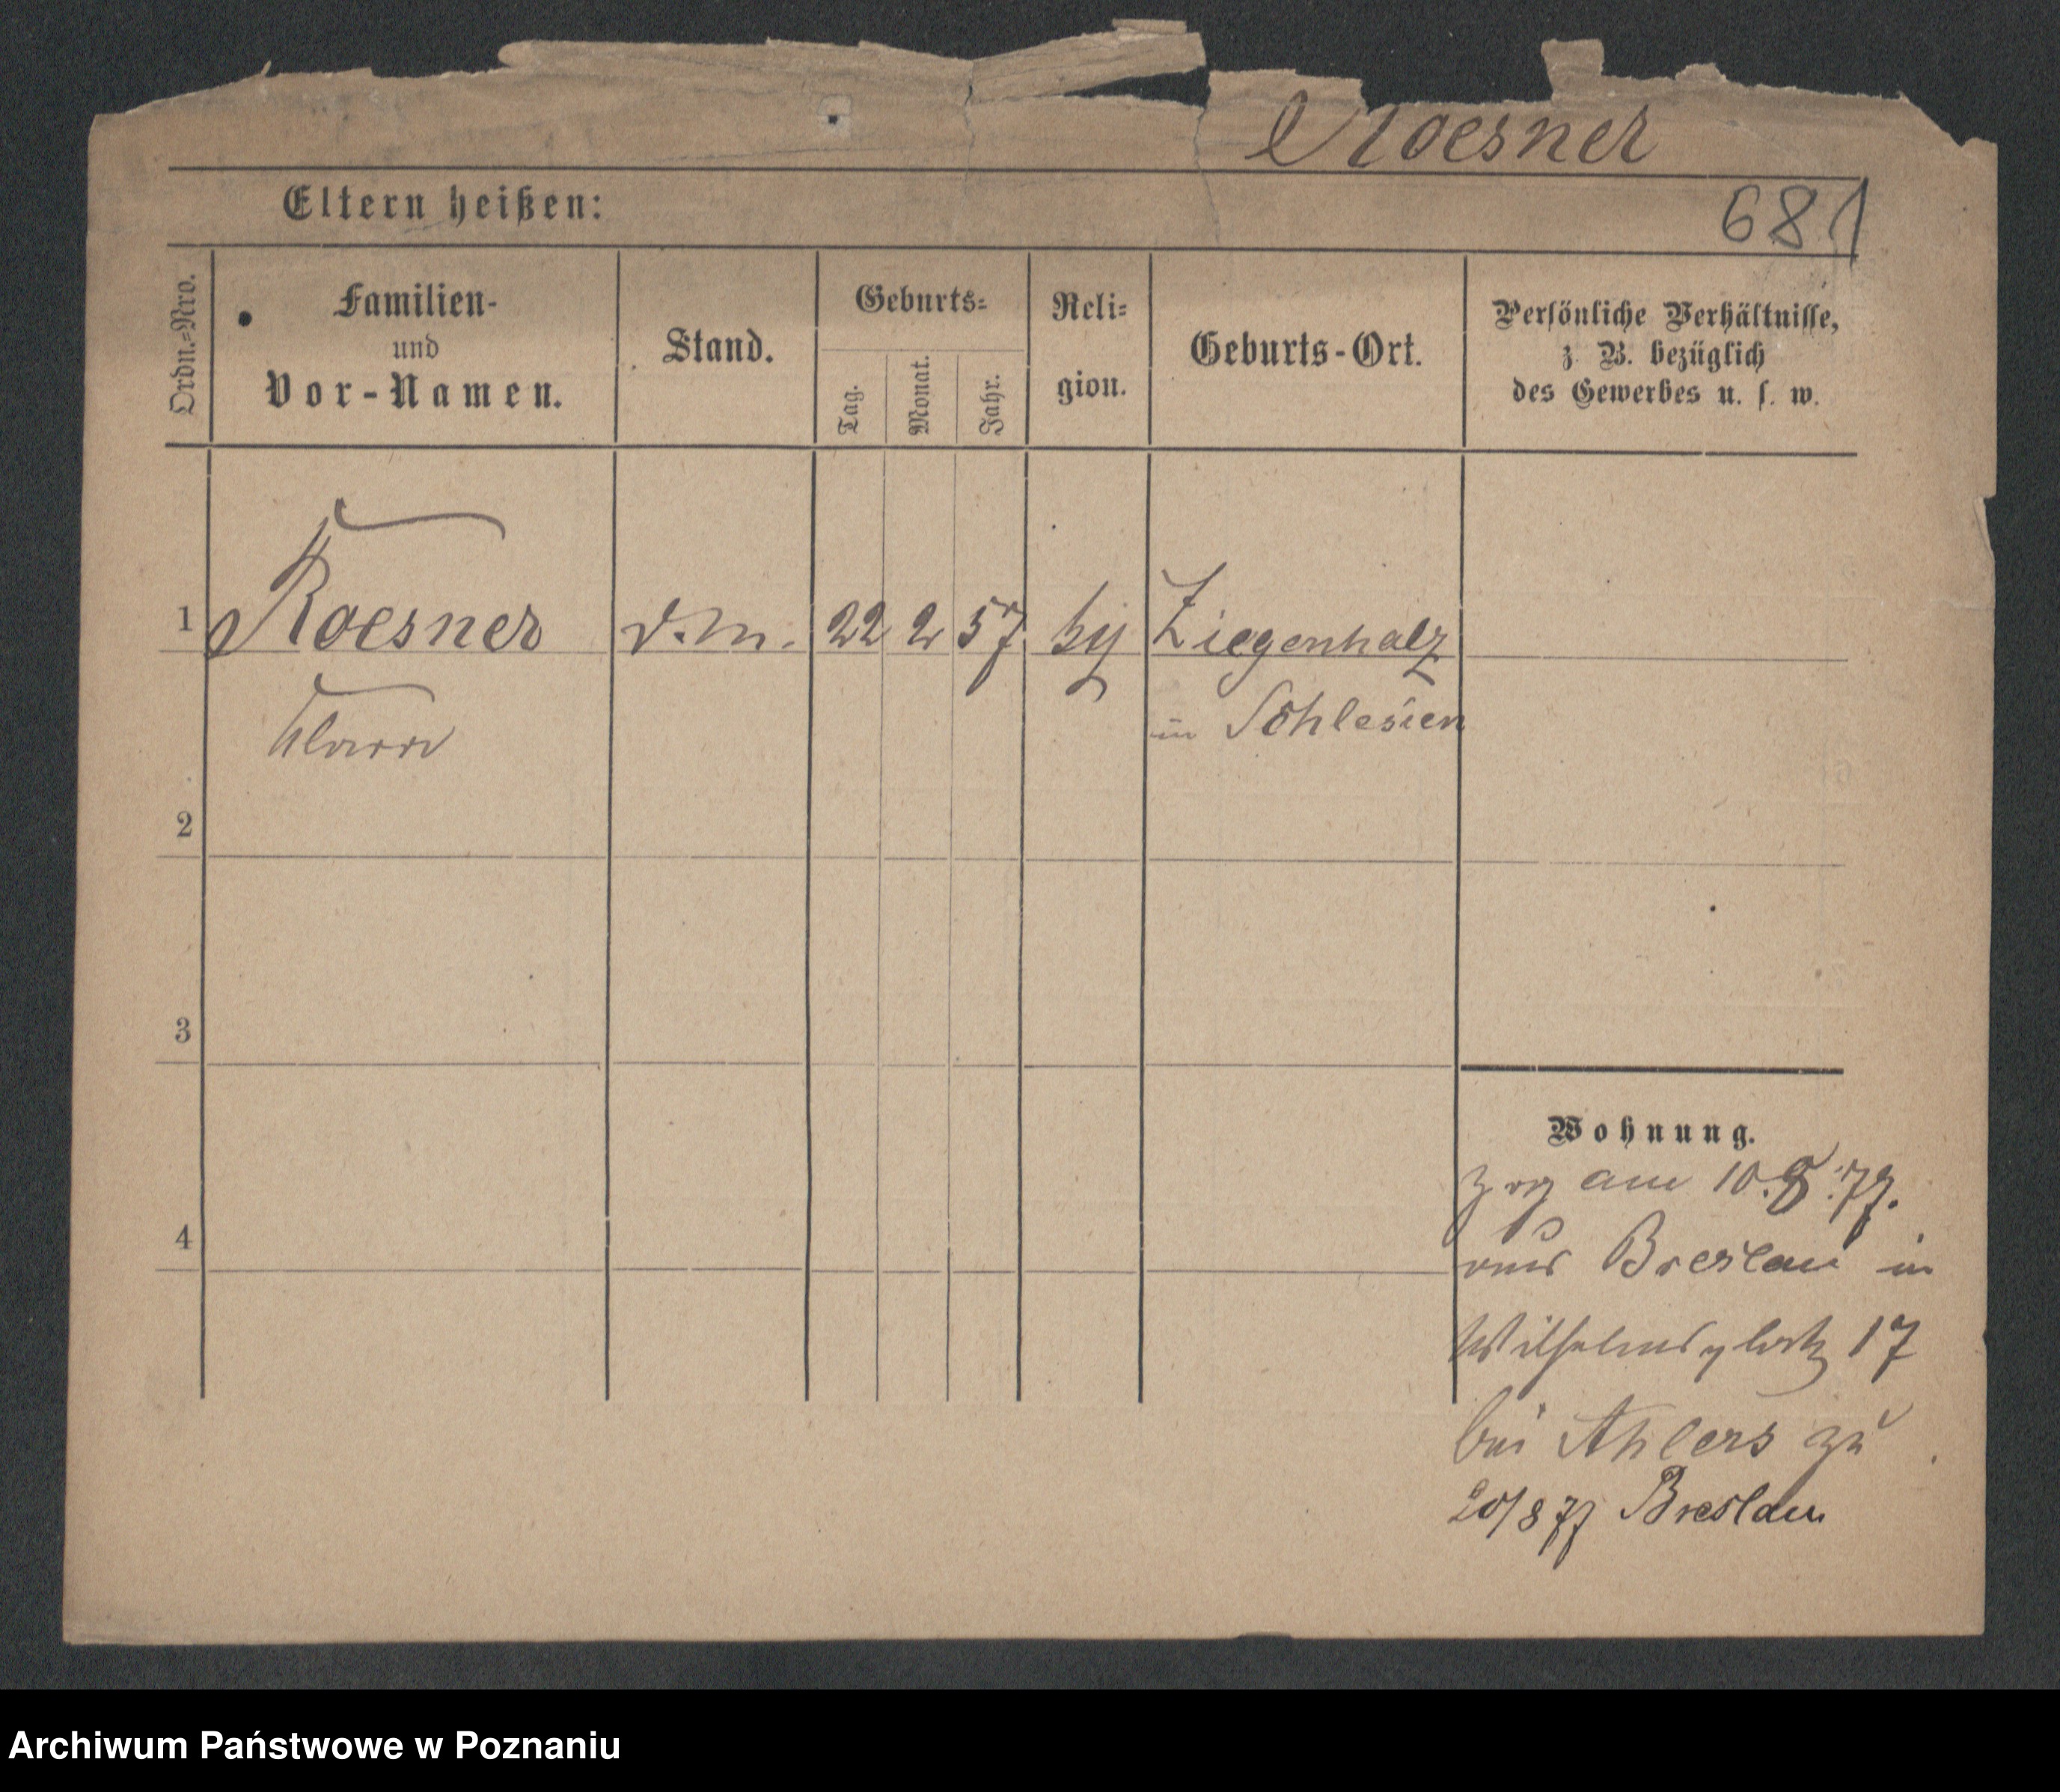 Roesner
681
Eltern heißen:
Ordn.-Nro.
Familien-
und
Vor-Namen.
Stand.
Geburts-
Tag.
Monat.
Jahr.
Reli-
gion.
Geburts-Ort.
Persönliche Verhältnisse,
z. B. bezüglich
des Gewerbes u. s. w.
1 Roesner d.m. 22 2 57 Ziegenhalz
Clara in Schlesien
2
3
4
Wohnung.
am 10.8.77.
aus Breslau in
Wilhelmsplatz 17
bei Ahlers zu
20/8 77 Breslau
Archiwum Państwowe w Poznaniu